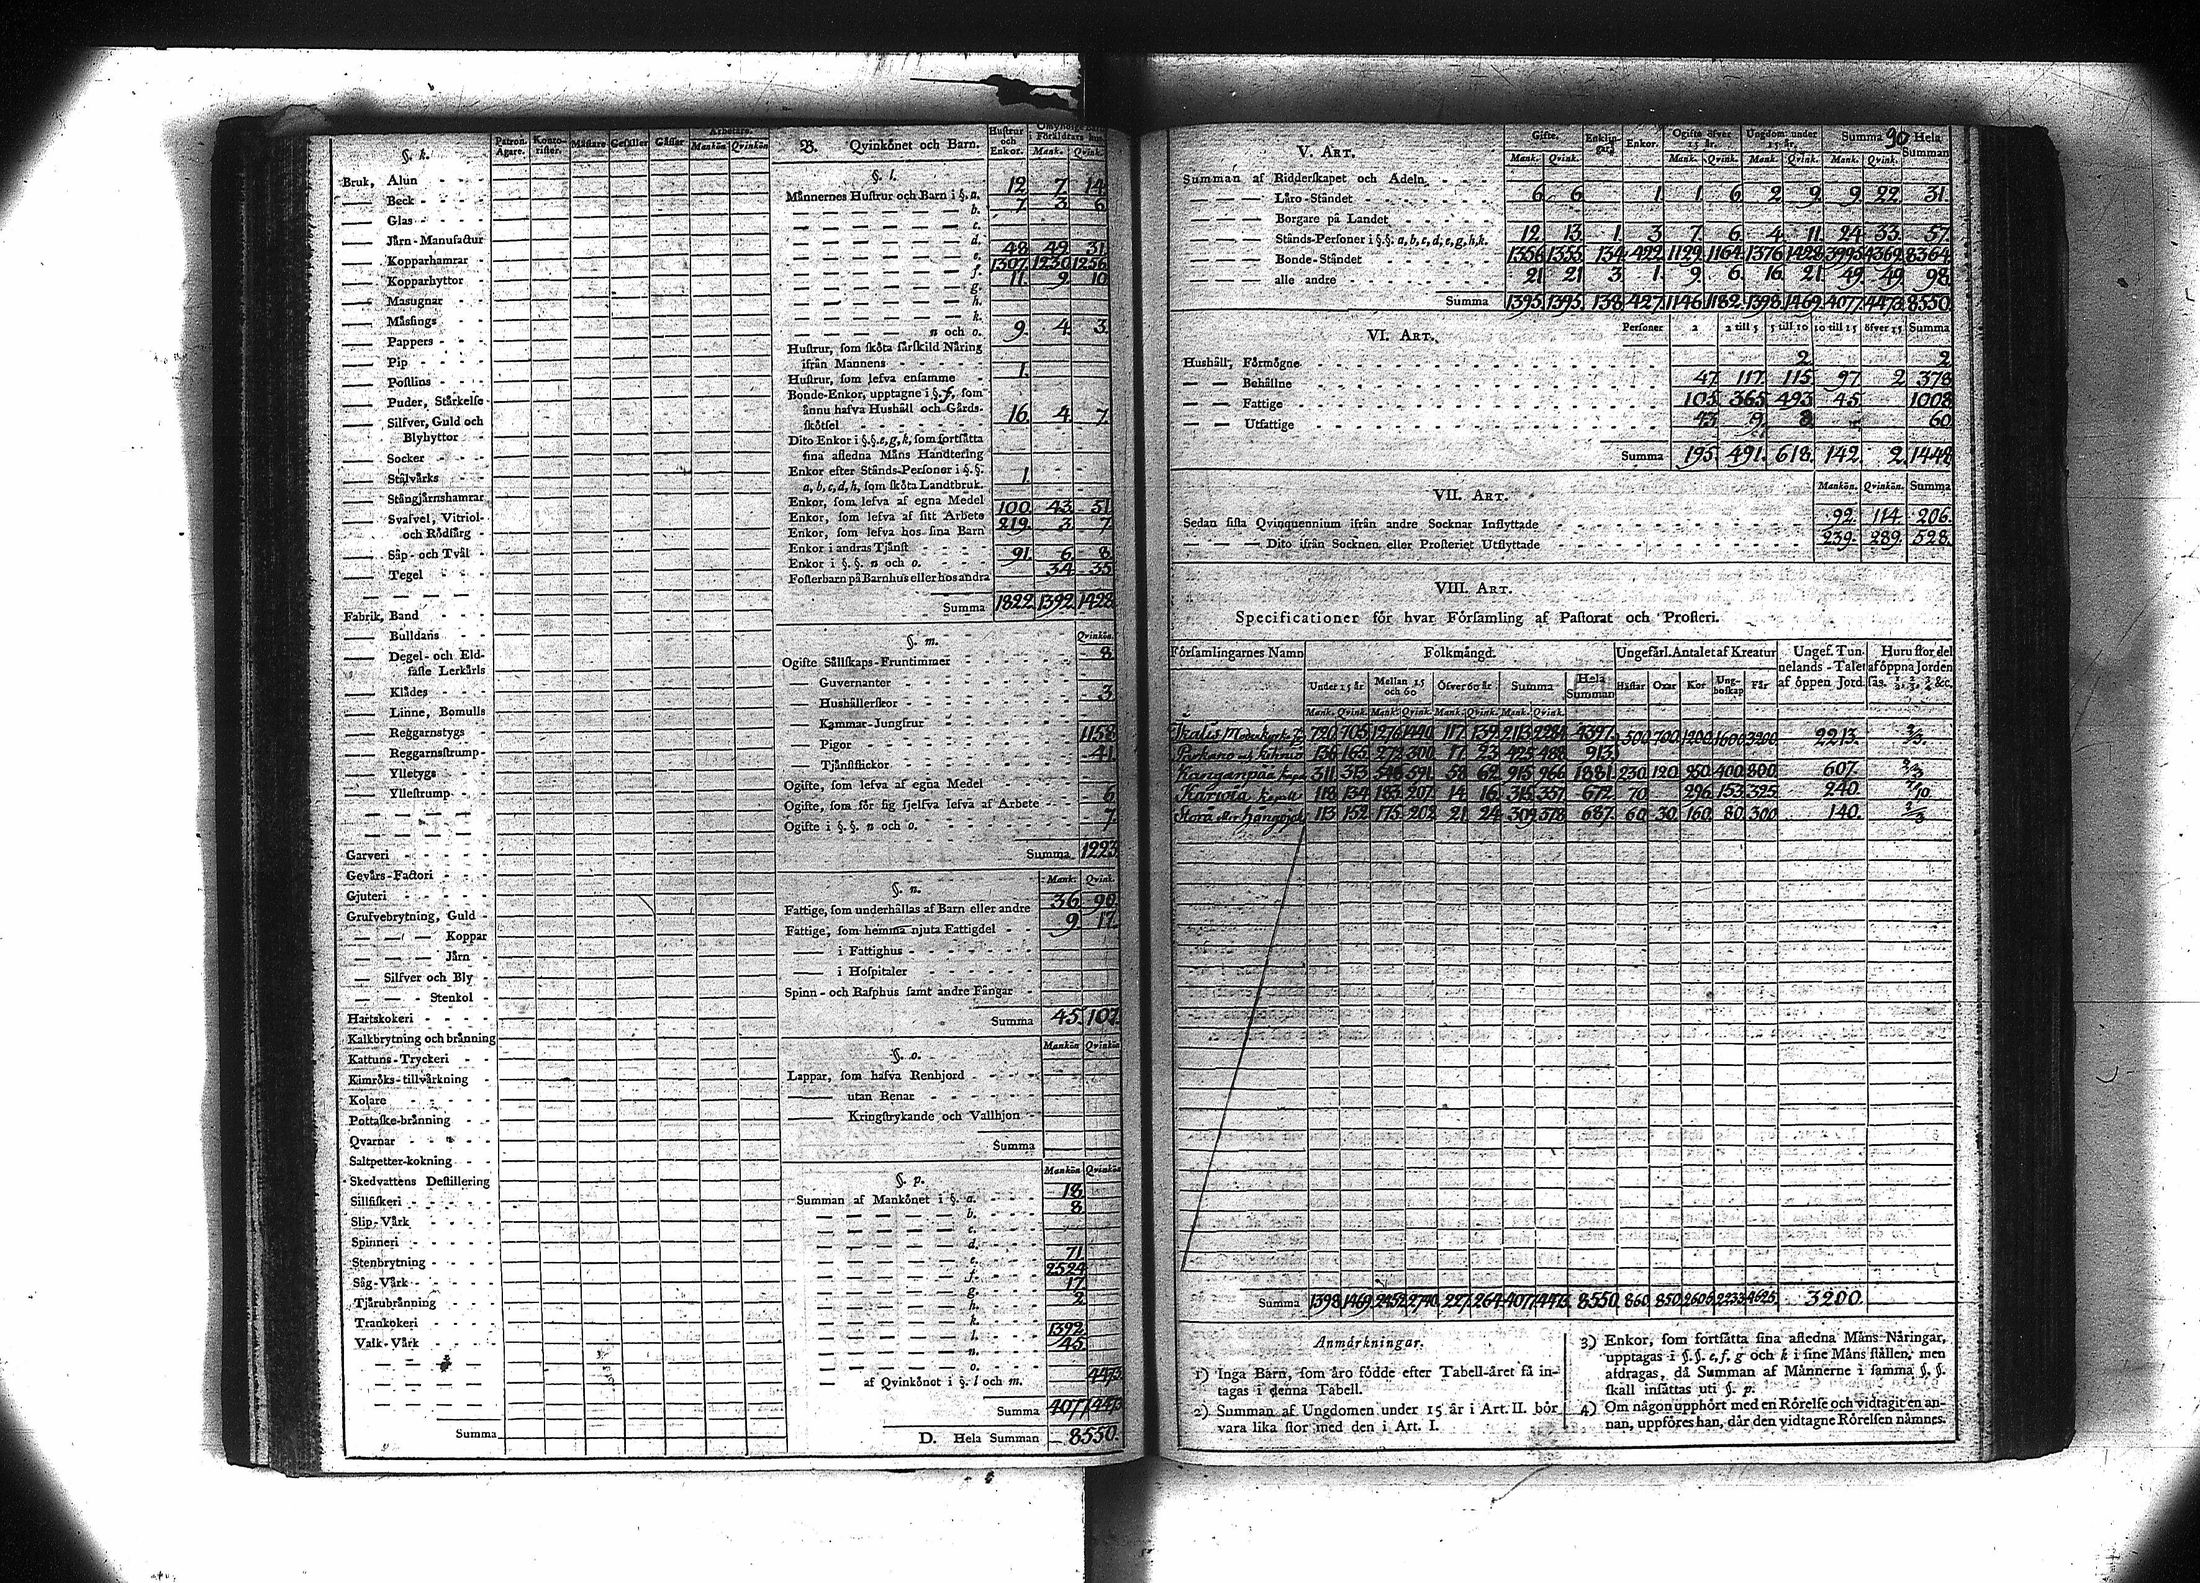 §. k.
Patron. Ägare.
Konto-rister.
Måstare
Gesäller
Gåssar
Arbetare.
Mankön
Qvinkön
Bruk, Alun
Beck
Glas
Järn-Manufactur
Kopparhamrar
Kopparhyttor
Masugnar
Måssings
Pappers
Pip
Postlins
Puder, Stårkelse
Silfver, Guld och
Blyhyttor
Socker
Stålvårks
Stångjårnshamrar
Svafvel, Vitriol-
och Rödfårg
Såp- och Tvål
Tegel
Fabrik, Band
Bulldans
Degel- och Eld-
faste Lerkårls
Klådes
Linne, Bomulls
Reggarnstygs
Reggarnsstrump
Ylletygs
Yllestrump
Garveri
Gevårs-Factori
Gjuteri
Grufvebrytning, Guld
Koppar
Jårn
Silfver och Bly
Stenkol
Hartskokeri
Kalkbrytning och brånning
Kattuns-Tryckeri
Kimröks-tillvårkning
Kolare
Pottaske-brånning
Qvarnar
Saltpetter-kokning
Skedvattens Destillering
Sillfiskeri
Slip-Vårk
Spinneri
Stenbrytning
Såg-Vårk
Tjårubrånning
Trankokeri
Valk-Vårk
Summa
B. Qvinkönet och Barn.
Hustrur och Enkor.
i Föräldrars hus
Mank.
Qvink.
§. l.
Månnernes Hustrur och Barn i §. a. 12 7 14
b. 7 3 6
c.
d.
e. 48 49 31
f. 1307 1230 1256
g. 11 9 10
h.
k.
n och o. 9. 4 3
Hustrur, som sköta särskild Nåring
ifrån Mannens
Hustrur, som lefva ensamme 1.
Bonde-Enkor, upptagne i §. f, som
ånnu hafva Hushåll och Gårds-
skötsel 16. 4 7
Dito Enkor i §.§. e, g, k, som fortsåtta
sina afledna Måns Handtering
Enkor efter Stånds-Personer i §.§.
a, b, c, d, h, som sköta Landtbruk. 1.
Enkor, som lefva af egna Medel
Enkor, som lefva af sitt Arbete 100 43 51
Enkor, som lefva hos sina Barn 219 3 7
Enkor i andras Tjånst
Enkor i §. §. n och o. 91. 6 8
Fosterbarn på Barnhus eller hos andra 34 35
Summa 1822 1392 1428
§. m.
Qvinkön.
Ogifte Sållskaps-Fruntimmer 8
Guvernanter
Hushållerskor 3
Kammar-Jungfrur
Pigor 1158
Tjånstflickor 41
Ogifte, som lefva af egna Medel
Ogifte, som för sig sjelfva lefva af Arbete 6
Ogifte i §. §. n och o. 7
Summa 1223
§. n.
Mank. Qvink.
Fattige, som underhållas af Barn eller andre 36 90
Fattige, som hemma njuta Fattigdel 9 17
i Fattighus
i Hospitaler
Spinn- och Rasphus samt andre Fångar
Summa 45 107
§. o.
Mankön Qvinkön
Lappar, som hafva Renhjord
utan Renar
Kringstrykande och Vallhjon
Summa
§. p.
Mankön Qvinkön
Summan af Mankönet i §. a. 18
b. 8
c.
d.
e. 71
f. 2524
g. 17
h. 2
k.
l. 1392
n. 45
o.
af Qvinkönet i §. l och m. 4473
Summa 4077 4473
D. Hela Summan 8550.
90
V. Art.
Gifte.
Enklingar
Enkor.
Ogifte öfver 15 år.
Ungdom under 15 år.
Summa
Hela Summan
Mank. Qvink. Mank. Qvink. Mank. Qvink. Mank. Qvink.
Summan af Ridderskapet och Adeln
Låro-Ståndet 6 6 1 1 6 2 9 9 22 31
Borgare på Landet
Stånds-Personer i §.§. a, b, c, d, e, g, h, k. 12 13 1 3 7 6 4 11 24 33 57
Bonde-Ståndet 1356 1355 134 422 1129 1164 1376 1428 3995 4369 8364
alle andre 21 21 3 1. 9 6 16 21 49 49 98
Summa 1395 1395 138 427 1146 1182 1398 1469 4077 4473 8550
VI. Art.
Personer 2 2 till 5 5 till 10 10 till 15 öfver 15 Summa
Hushåll, Förmögne 2 2
Behållne 47 117 115 97 2 378
Fattige 105 365 493 45 1008
Utfattige 43 9 8 60
Summa 195 491 618 142 2 1448
VII. Art.
Mankön. Qvinkön. Summa
Sedan sista Qvinquennium ifrån andre Socknar Inflyttade 92 114 206
Dito ifrån Socknen eller Prosteriet Utflyttade 239 289 528
VIII. Art.
Specificationer för hvar Församling af Pastorat och Prosteri.
Församlingarnes Namn
Folkmängd.
Ungefärl. Antalet af Kreatur
Ungef. Tun-nelands-Talet af öppen Jord.
Huru stor del af öppna Jorden sås. 1/2, 2/3, 3/4 &c.
Under 15 år
Mellan 15 och 60
Öfver 60 år
Summa
Hela Summan
Hästar Oxar Kor Ung-boskap Får
Mank. Qvink. Mank. Qvink. Mank. Qvink. Mank. Qvink.
Moderkyrka 720 705 1276 1440 117 139 2113 2284 4397 500 700 1200 1600 3200 2213. 2/3.
Parkano och Kihniö 136 165 272 300 17 23 425 488 913
Kanganpää Kapell 311 313 546 591 58 62 915 966 1881 230 120 950 400 800 607. 2/3
Karvia Kapell 118 134 183 207 14 16 315 357 672 70 296 153 325 240
113 152 175 202 21 24 309 378 687 60 30 160 80 300 140. 2/3
Summa 1398 1469 2452 2740 227 264 4077 4473 8550 860 850 2606 2233 4625 3200
Anmårkningar.
1) Inga Barn, som åro födde efter Tabell-året få in-
tagas i denna Tabell.
2) Summan af Ungdomen under 15 år i Art. II. bör
vara lika stor med den i Art. I.
3) Enkor, som fortsåtta sina afledna Måns Nåringar,
upptagas i §. §. e, f, g och k i sine Måns stållen, men
afdragas, då Summan af Männerne i samma §. §.
skall insåttas uti §. p.
4) Om någon upphört med en Rörelse och vidtagit en an-
nan, uppföres han, dår den vidtagne Rörelsen nåmnes.